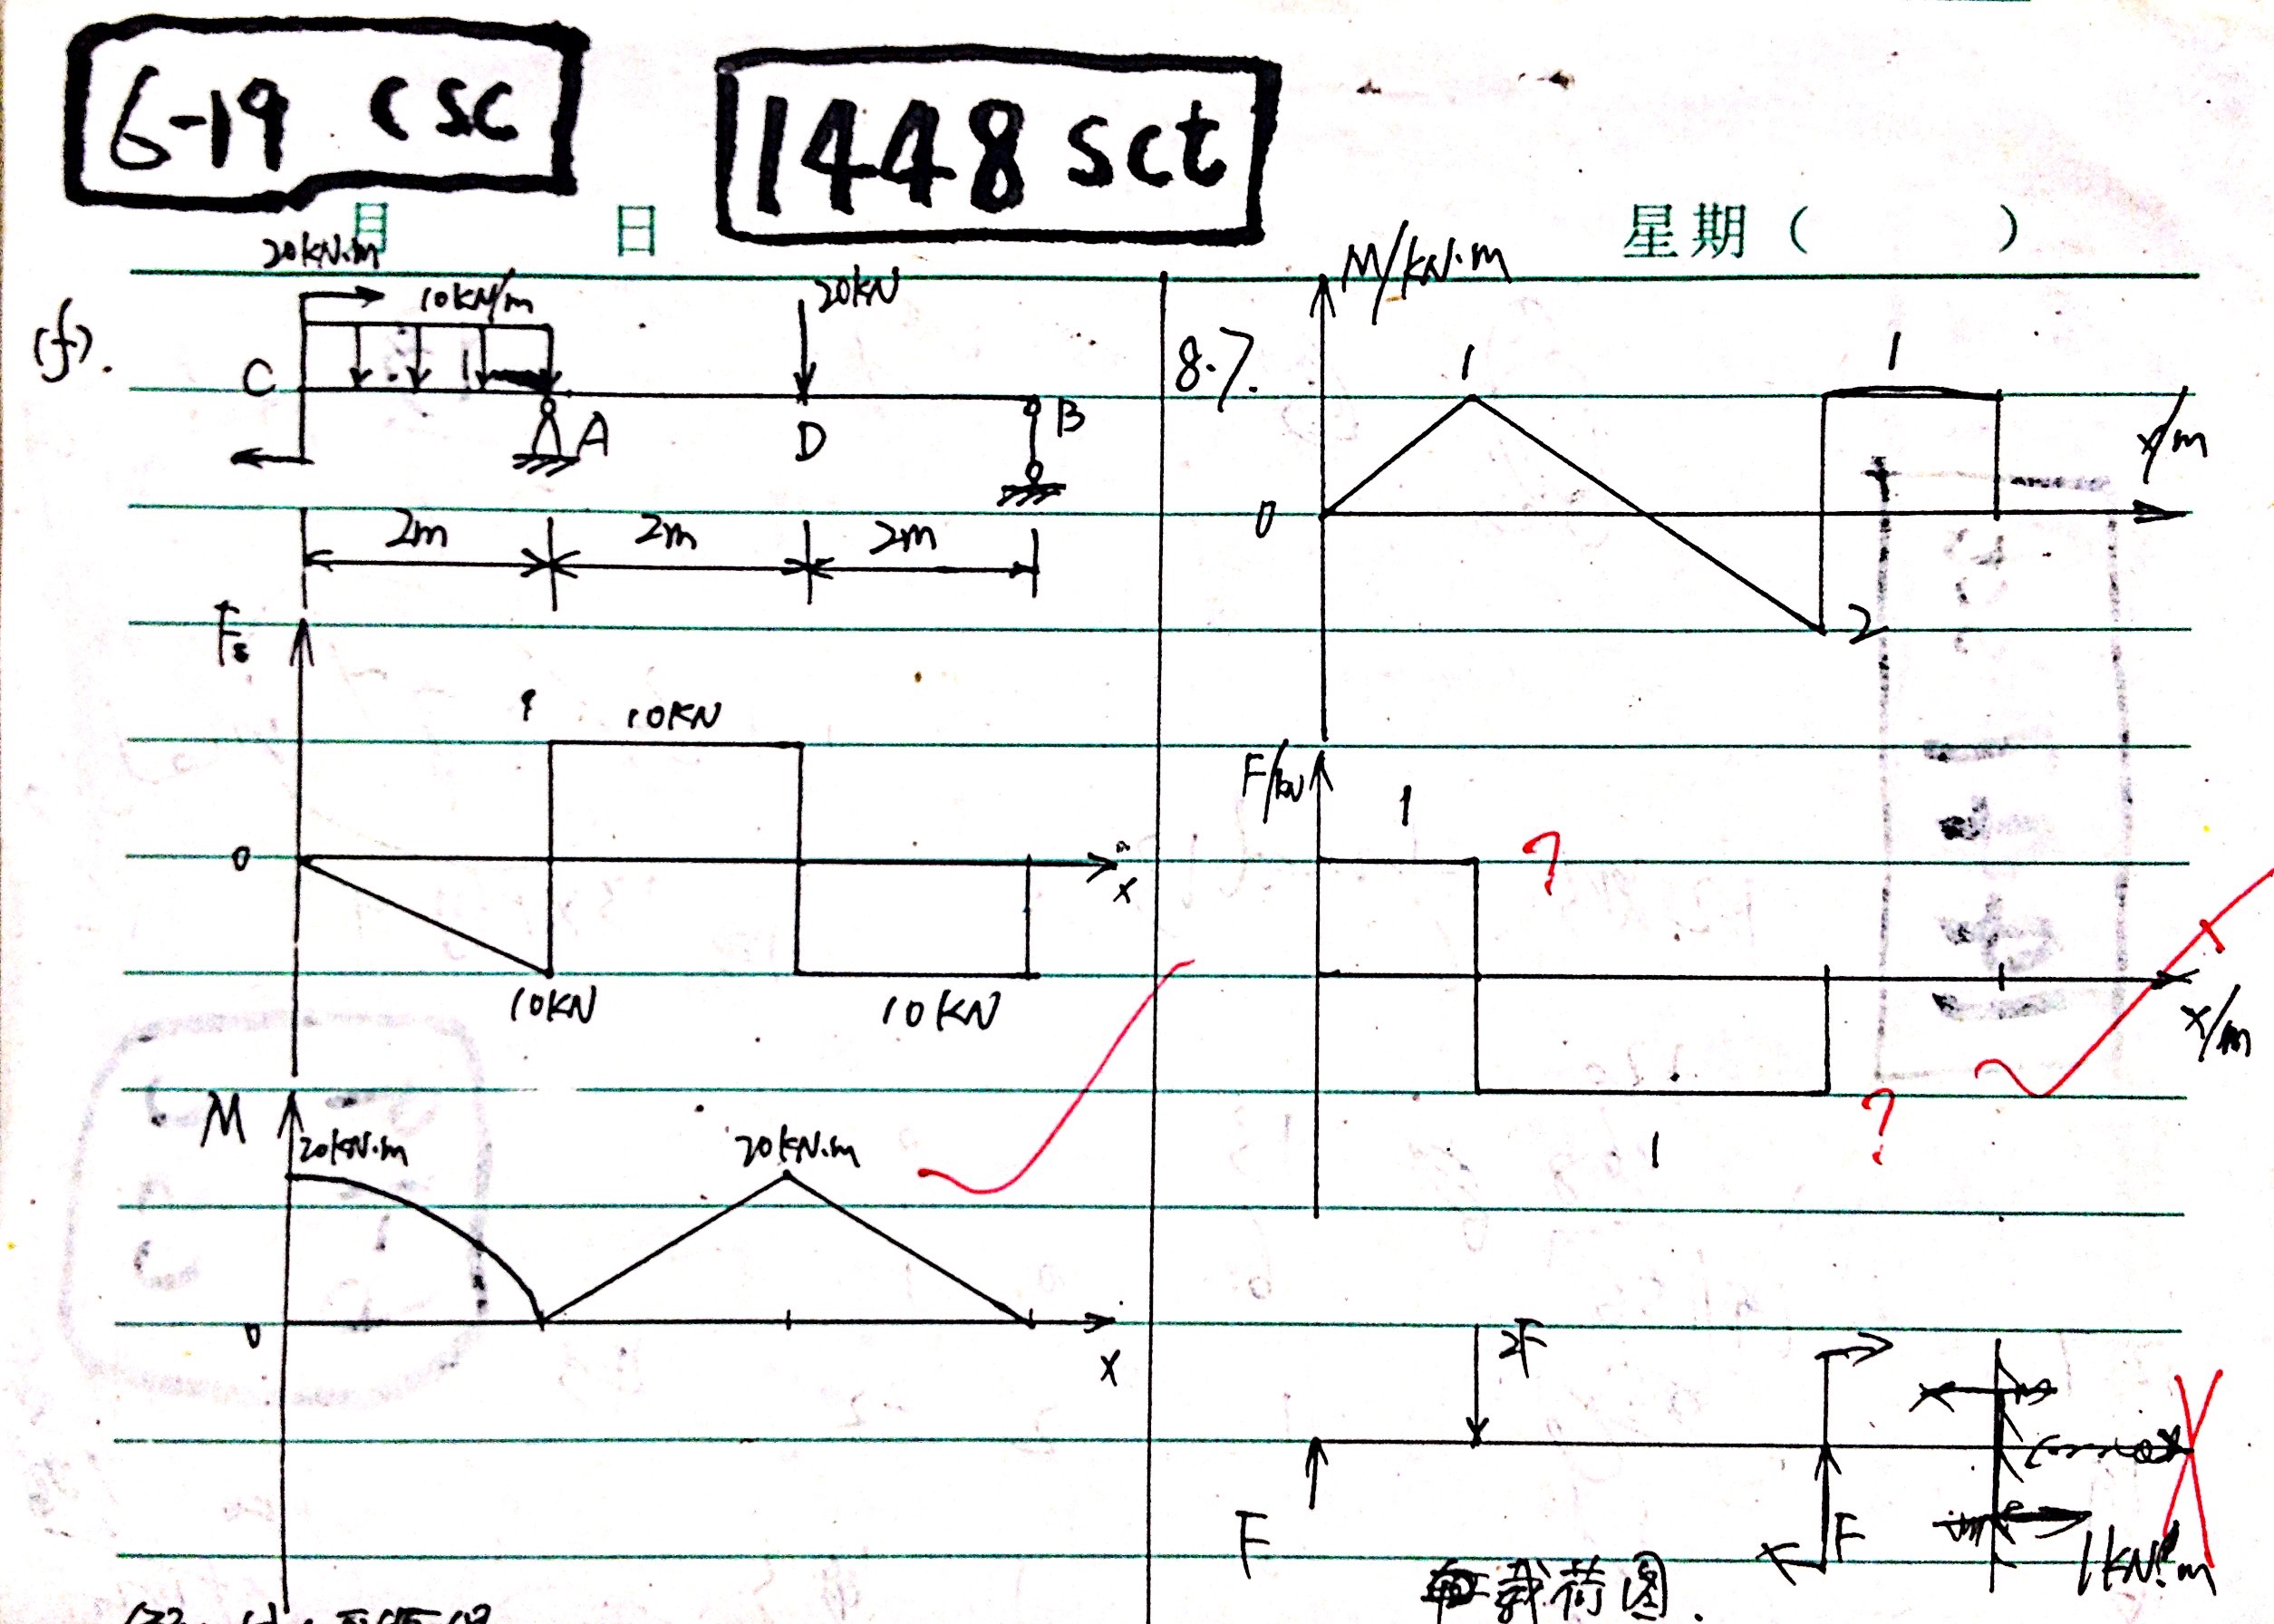 6-19 csc
1448 sct
月 日 星期( )
(f).
20kN·m
10kN/m
20kN
C
A
D
B
2m 2m 2m
Fs
10KN
0
x
10KN
10KN
M
20kN·m
20kN·m
0
x
8.7.
M/kN·m
1
1
x/m
0
2
F/kN
1
?
x/m
?
1
2F
F
F
1kN·m
载荷图.